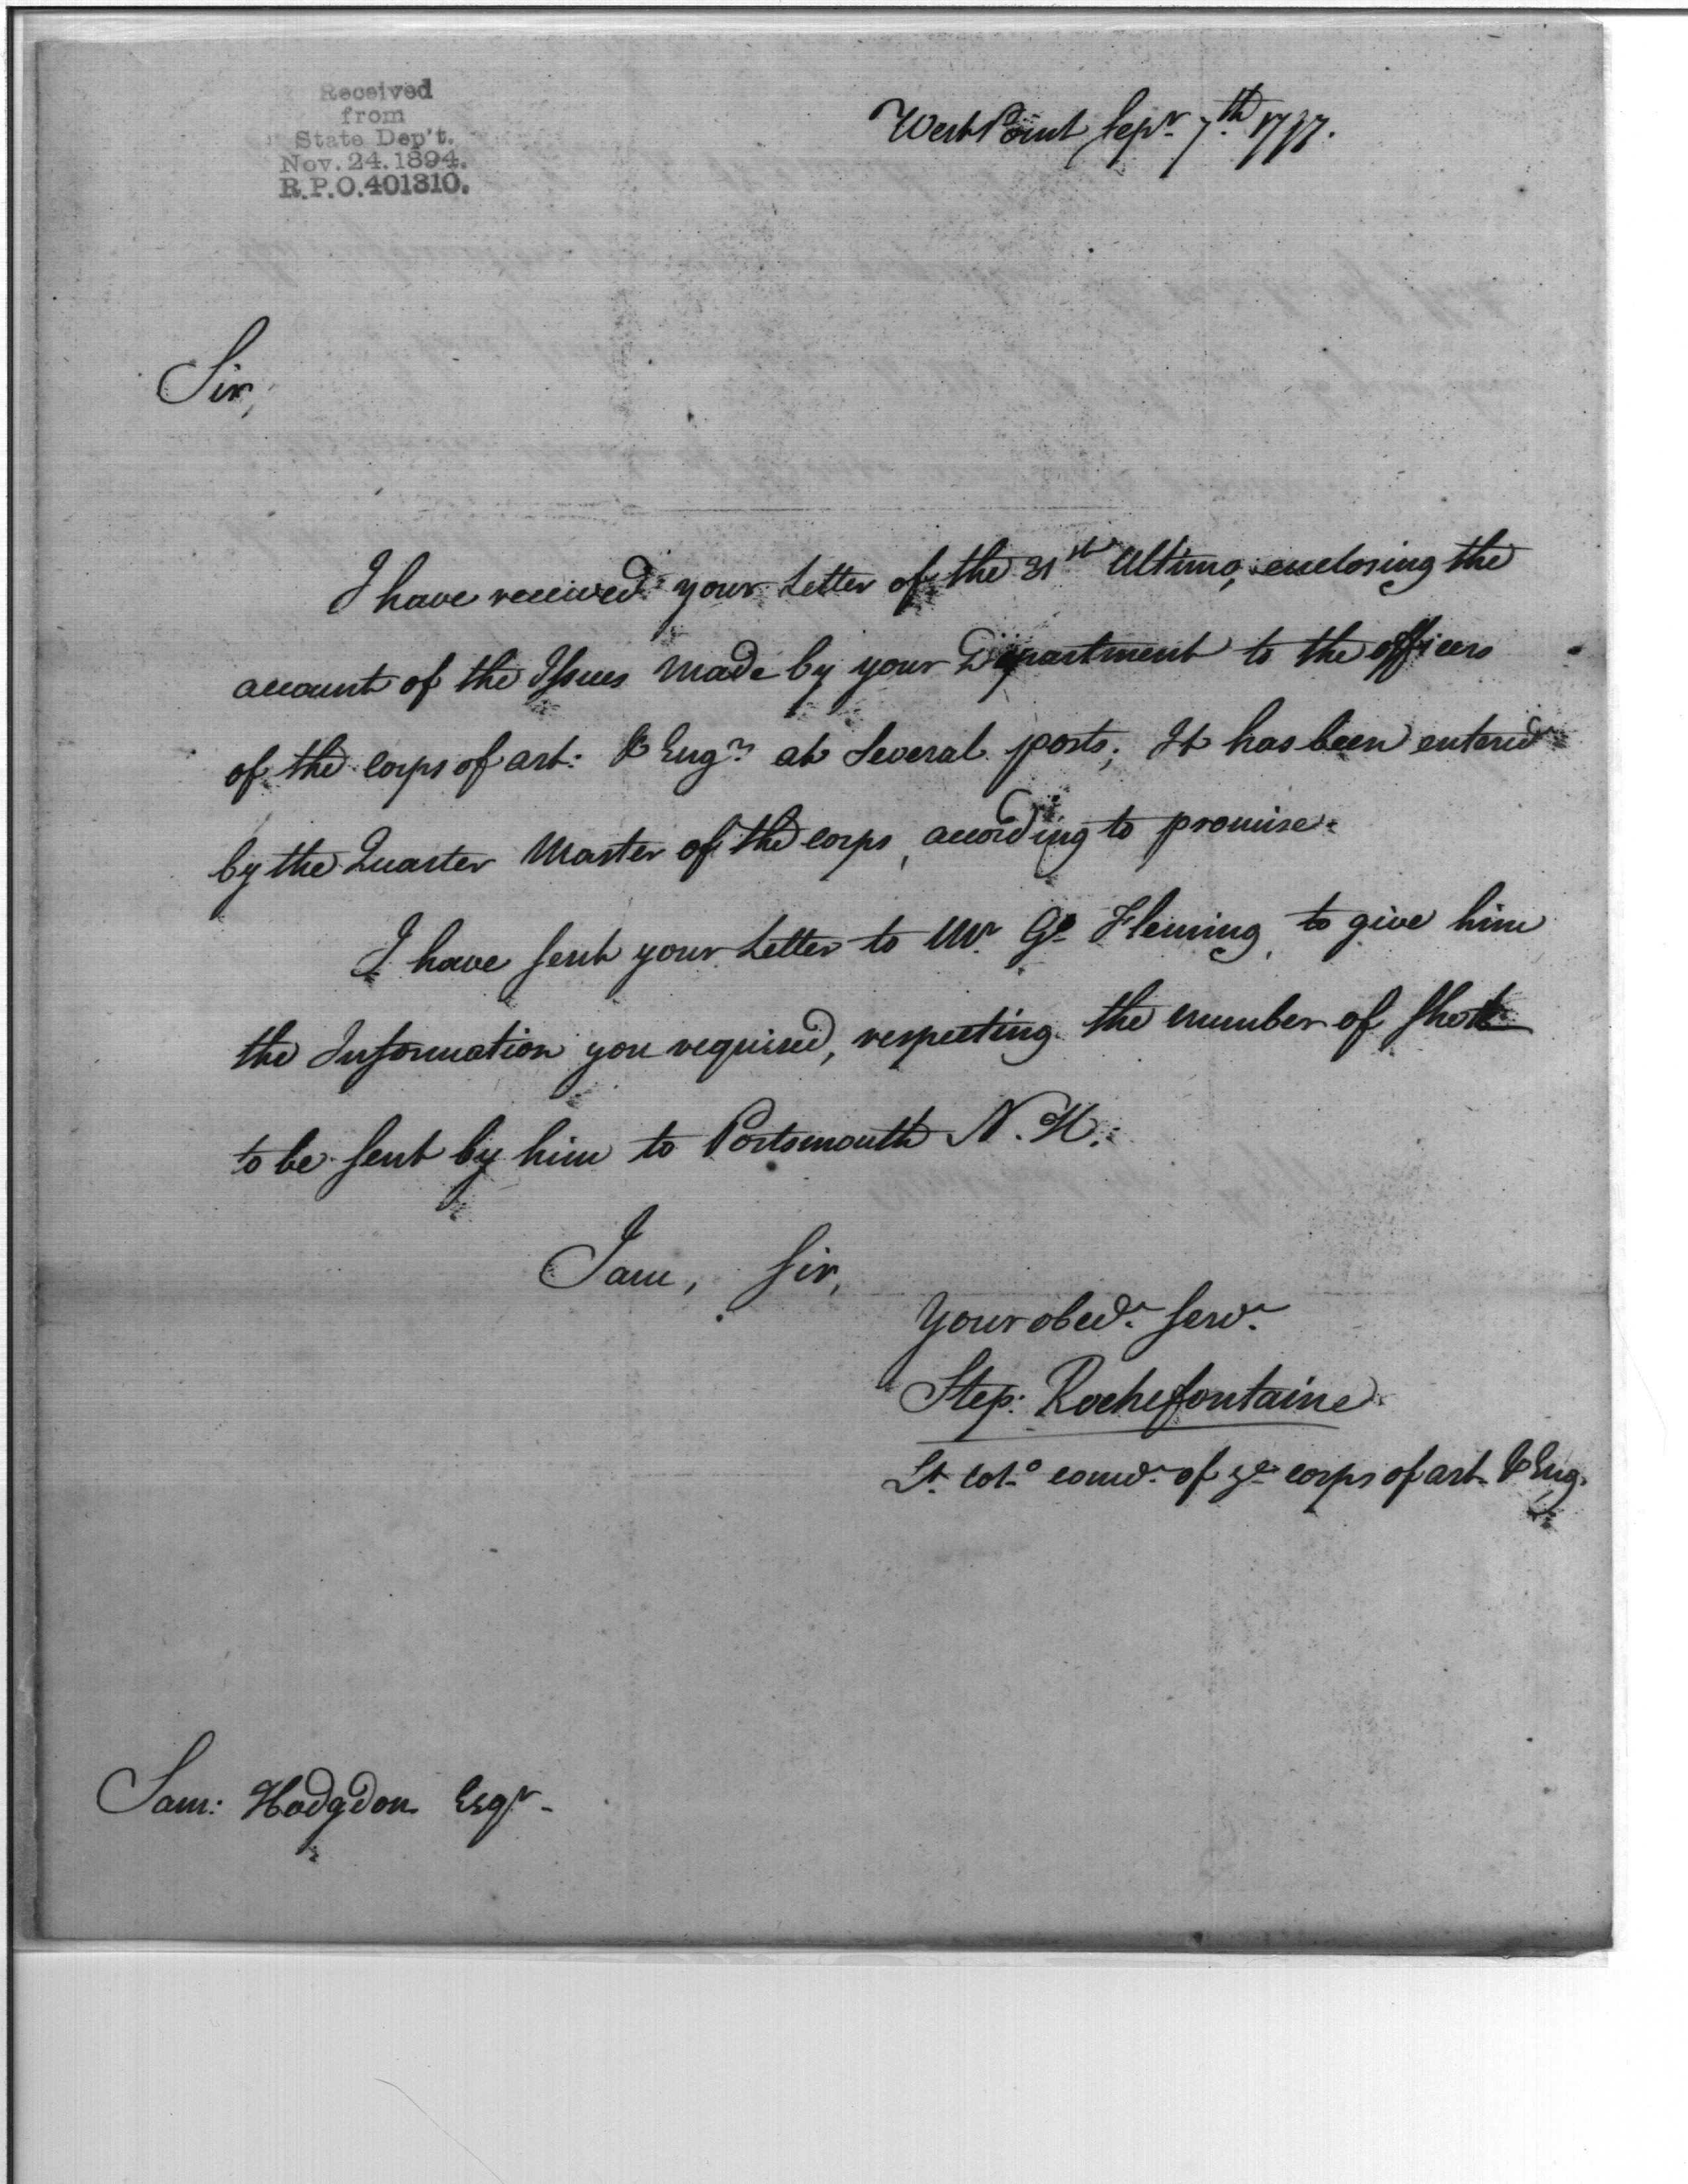 Received
from
State Dep't.
Nov. 24. 1894.
R.P.O. 401310.
West Point Sepr. 7th. 1797.
Sir,
I have received your Letter of the 31st Ultimo, enclosing the
account of the Issues made by your Department to the officers
of the corps of art: & Engrs at Several posts; It has been entered
by the Quarter Master of the corps, according to promise.
I have sent your Letter to Mr. Ge. Fleming, to give him
the Information you required, respecting the number of Shot
to be sent by him to Portsmouth N. H.
I am, Sir,
Your obed. Serv.
Step: Rochefontaine
Lt. Colo. comd. of ye corps of art. & Eng.
Sam: Hodgdon Esqr.